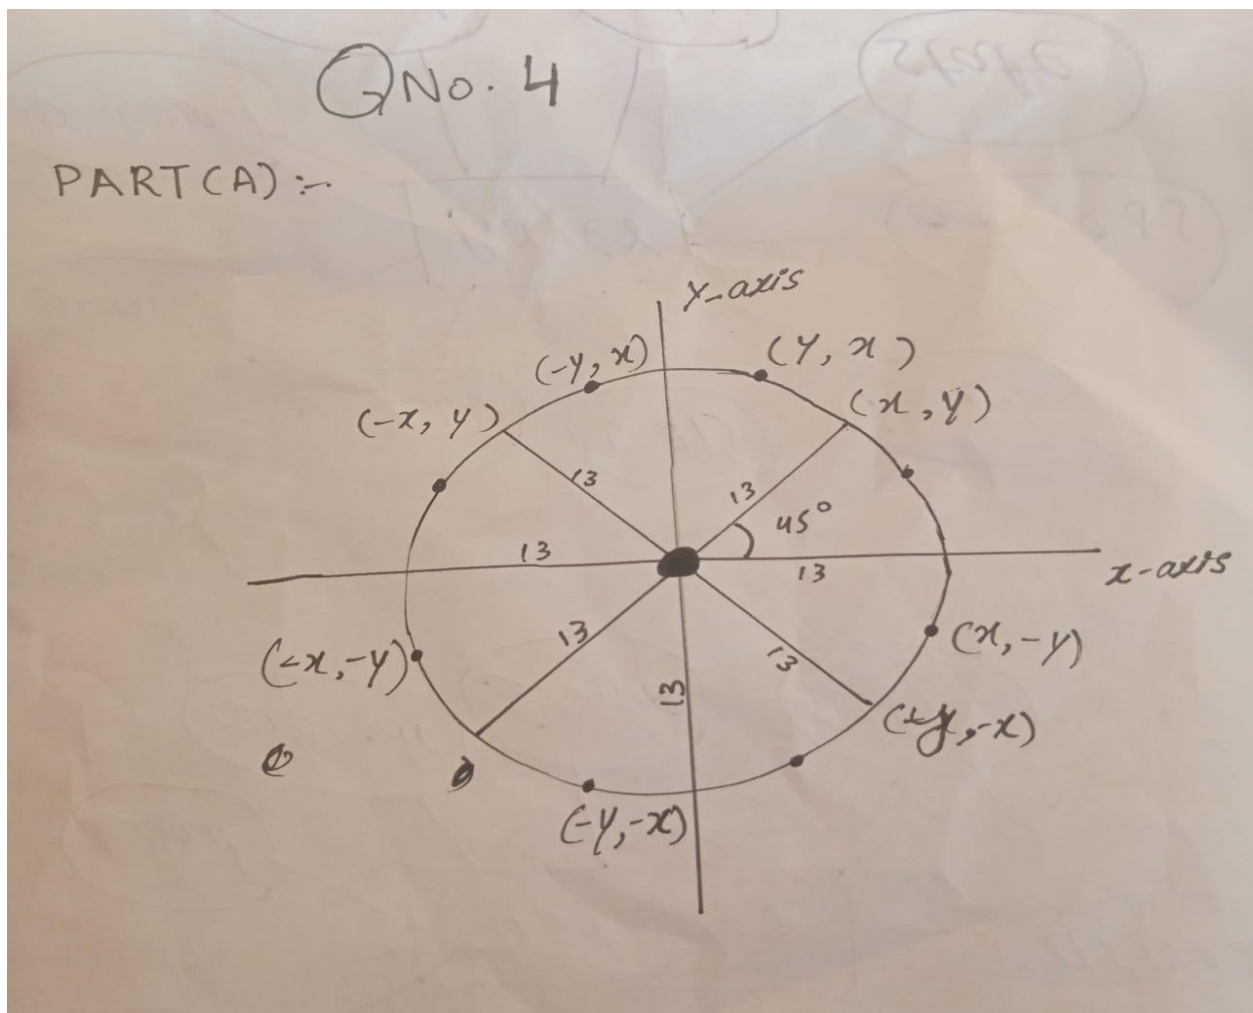 Q No. 4
PART (A) :-
Y-axis
(-y, x)
(Y, x)
(-x, y)
(x, y)
13
13
45°
13
13
x-axis
13
13
(x, -y)
(-x, -y)
13
(+y, -x)
(-y, -x)